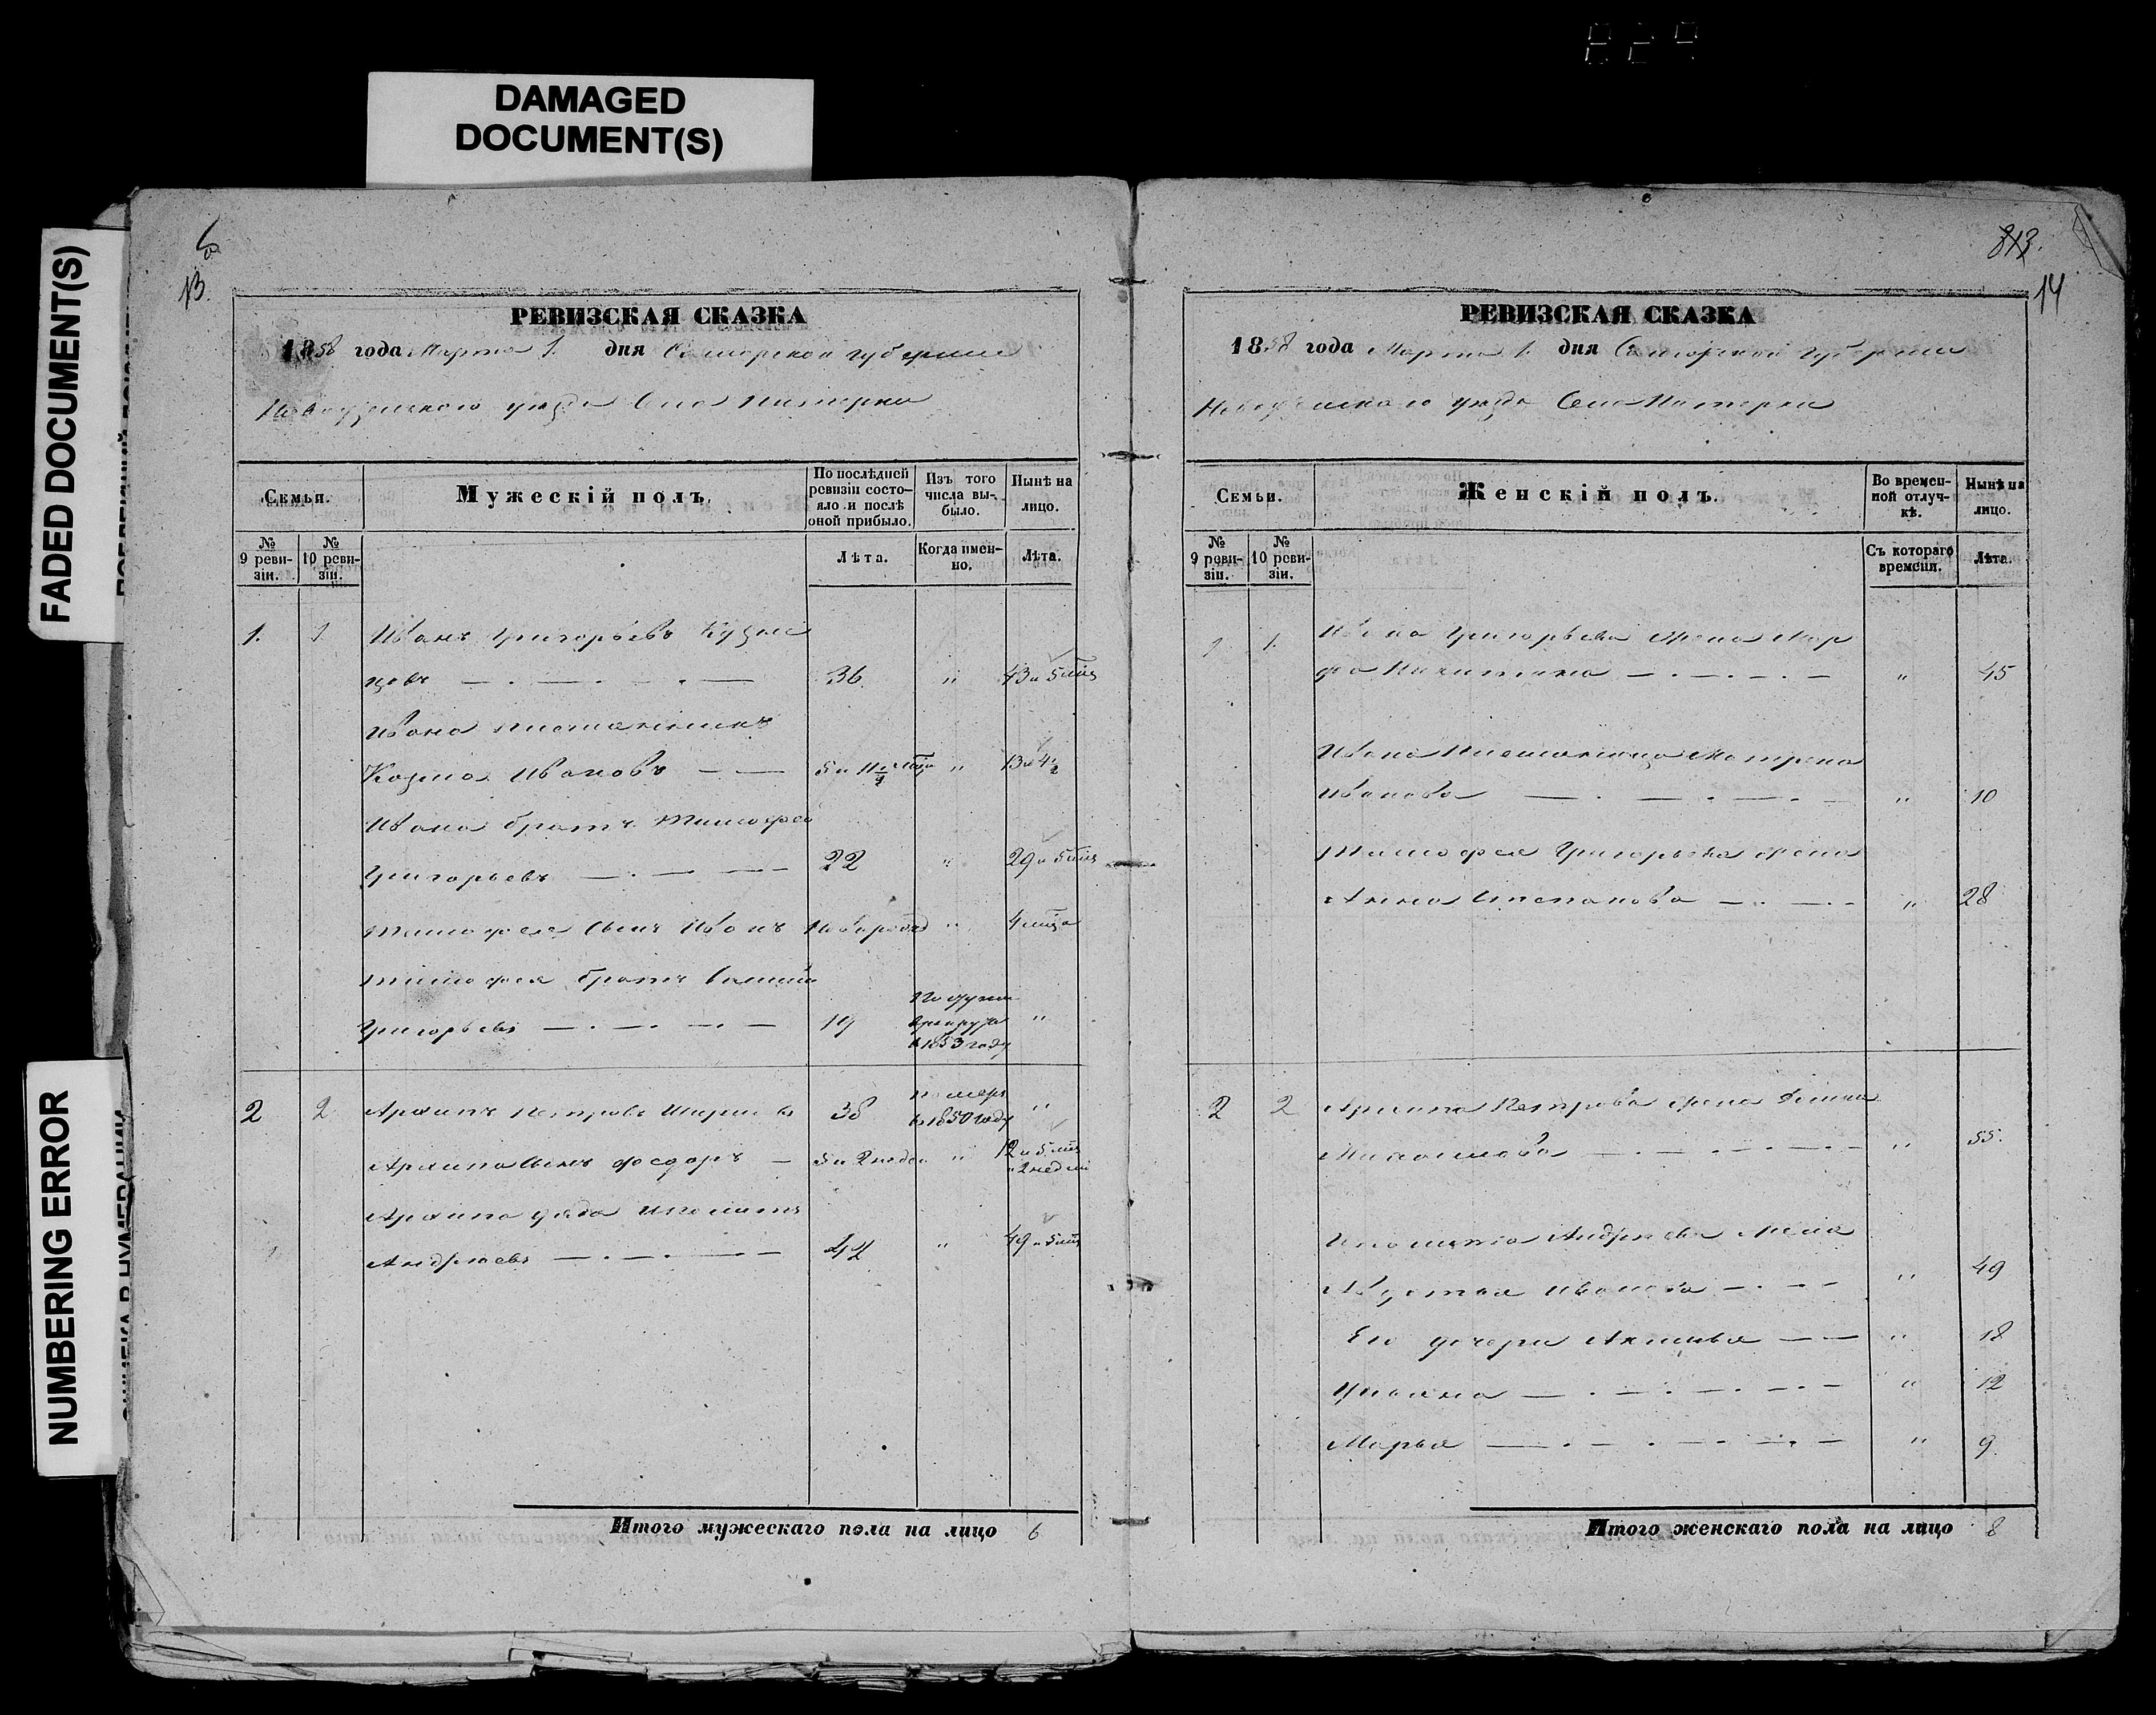 DAMAGED
DOCUMENT(S)
FADED DOCUMENT(S)
NUMBERING ERROR
13.
РЕВИЗСКАЯ СКАЗКА
1858 года Марта 1. дня Самарской губернии
Новоузенского уезда Села Питерки
Семья.
Мужескій полъ.
По послѣдней ревизіи состояло и послѣ оной прибыло.
Изъ того числа выбыло.
Нынѣ на лицо.
№ 9 ревизіи.
№ 10 ревизіи.
Лѣта.
Когда именно.
Лѣта.
1. 1 Иванъ Григорьевъ Кузне
цовъ 36 " 43 и 5 мцъ
Ивана
Козма Ивановъ 5 и 11 1/2 " 13 и 4 1/2
Ивана братъ Тимофей
Григорьевъ 22 " 29 и 5 мцъ
Тимофея сынъ Иванъ " 4 мца
Тимофея братъ
Григорьевъ 19 в 1853 году "
2 2 Архипъ Петровъ 38 помер в 1850 году "
Архипа сынъ Федоръ 5 и 2 недел " 12 и 5 мцъ и 2 недели
Архипа дядя
Андреевъ 42 " 49 и 5 мцъ
Итого мужескаго пола на лицо 6
813.
14
РЕВИЗСКАЯ СКАЗКА
1858 года Марта 1. дня Самарской губернии
Новоузенского уезда Села Питерки
Семьи.
Женскій полъ.
Во временной отлучкѣ.
Нынѣ на лицо.
№ 9 ревизіи.
№ 10 ревизіи.
Съ котораго времени.
Лѣта.
1 1. Ивана Григорьева жена Мар
фа Никитина " 45
Ивана Матрена
Иванова " 10
Тимофея Григорьева жена
Анна Степанова " 28
2 2 Архипа Петрова жена
" 55.
Андреева жена
Авдотья Иванова " 49
Его дочери Акилина " 18
Ульяна " 12
Марья " 9
Итого женскаго пола на лицо 8